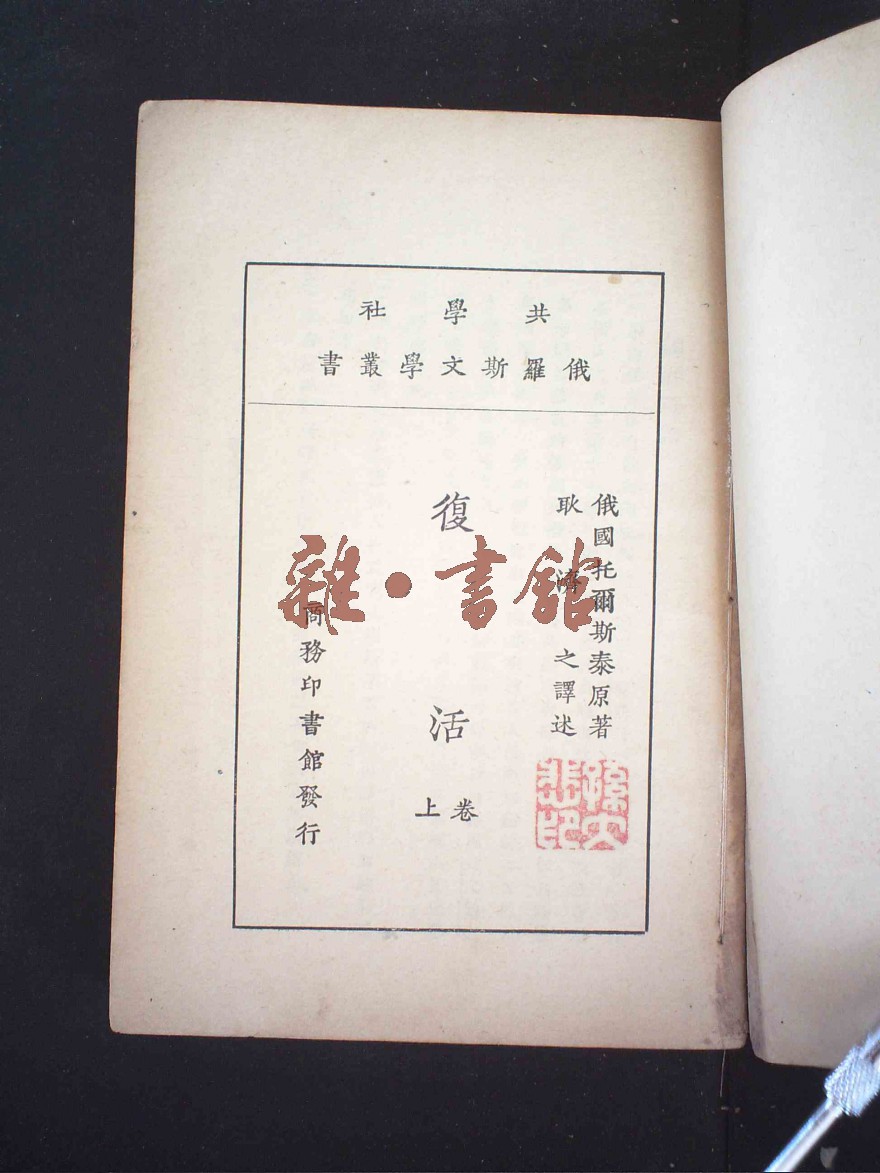 共學社
俄羅斯文學叢書
俄國托爾斯泰原著
耿濟之譯述
復活
卷上
商務印書館發行
雜·書館
孫大悲印